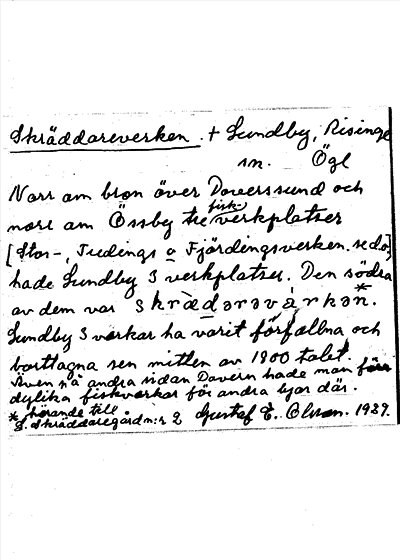 Skräddareverken. + Lundby, Risinge
sn. Ögl
Norr om bron över Doverssund och
norr om Össby tre fiskverkplatser
[Stor-, Tredings o Fjördingsverken. se do]
hade Lundby 3 verkplatser. Den södra
av dem var skrädarəvärkən*.
Lundby 3 verkar ha varit förfallna och
borttagna sen mitten av 1800 talet.
Även på andra sidan Dovern hade man förr
dylika fiskverkar för andra byar där.
* hörande till
S. Skräddaregård n:r 2 Gustaf E. Olsson. 1929.